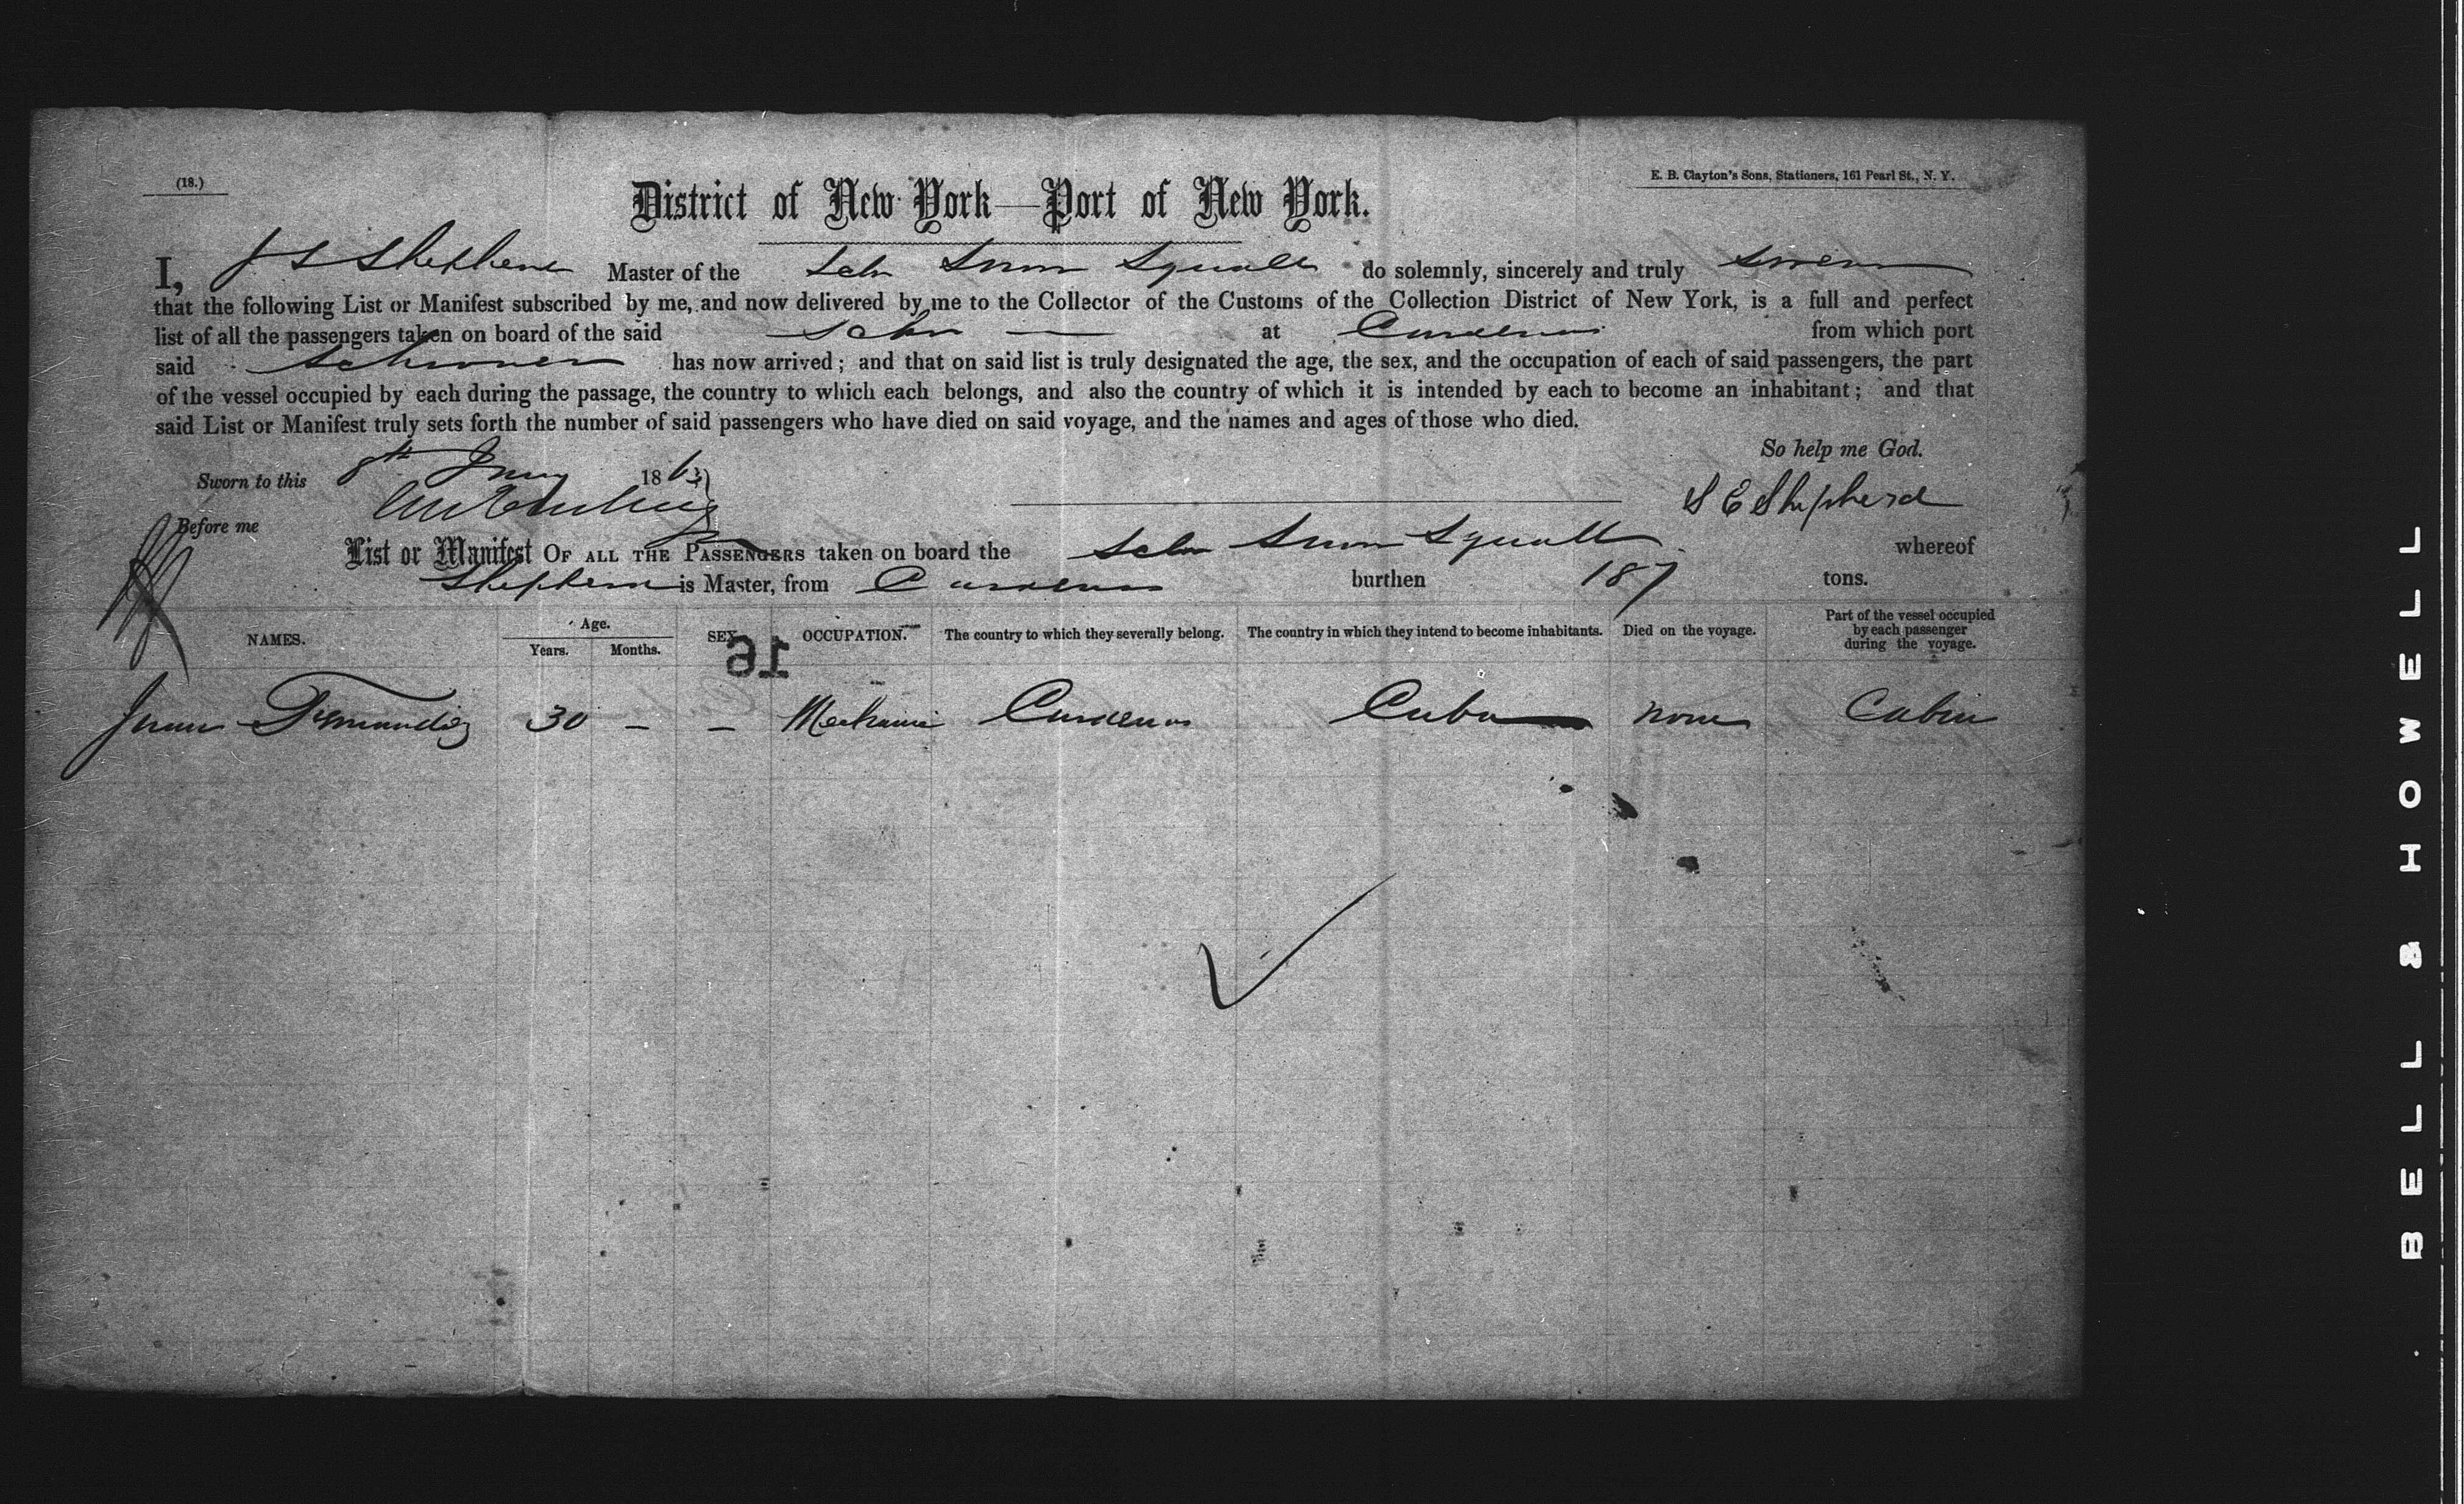 (18.)
E. B. Clayton's Sons, Stationers, 161 Pearl St., N. Y.
District of New York—Port of New York.
I, J S Shepherd Master of the Schr Snow Squall do solemnly, sincerely and truly swear
that the following List or Manifest subscribed by me, and now delivered by me to the Collector of the Customs of the Collection District of New York, is a full and perfect
list of all the passengers taken on board of the said Schr — at Cardenas from which port
said Schooner has now arrived; and that on said list is truly designated the age, the sex, and the occupation of each of said passengers, the part
of the vessel occupied by each during the passage, the country to which each belongs, and also the country of which it is intended by each to become an inhabitant; and that
said List or Manifest truly sets forth the number of said passengers who have died on said voyage, and the names and ages of those who died.
So help me God.
Sworn to this 8th 1863
S E Shepherd
Before me
List or Manifest OF ALL THE PASSENGERS taken on board the Schr Snow Squall whereof
Shepherd is Master, from Cardenas burthen 187 tons.
NAMES. Age. Years. Months. SEX. OCCUPATION. The country to which they severally belong. The country in which they intend to become inhabitants. Died on the voyage. Part of the vessel occupied by each passenger during the voyage.
16
Juan Fernandez 30 — — Mechanic Cardenas Cuba none Cabin
BELL & HOWELL